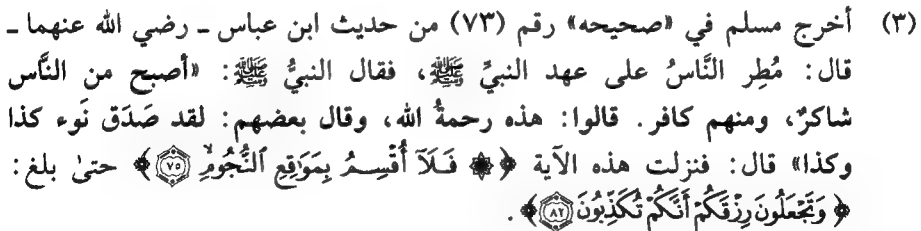 (٣) أخرج مسلم في «صحيحه» رقم (٧٣) من حديث ابن عباس ـ رضي الله عنهما ـ
قال: مُطِر النَّاسُ على عهد النبيِّ ﷺ، فقال النبيُّ ﷺ: «أصبح من النَّاس
شاكرٌ، ومنهم كافر. قالوا: هذه رحمةُ الله، وقال بعضهم: لقد صَدَق نَوء كذا
وكذا» قال: فنزلت هذه الآية ﴿۞ فَلَآ أُقْسِمُ بِمَوَاقِعِ ٱلنُّجُومِ ۝٧٥﴾ حتىٰ بلغ:
﴿وَتَجْعَلُونَ رِزْقَكُمْ أَنَّكُمْ تُكَذِّبُونَ ۝٨٢﴾.